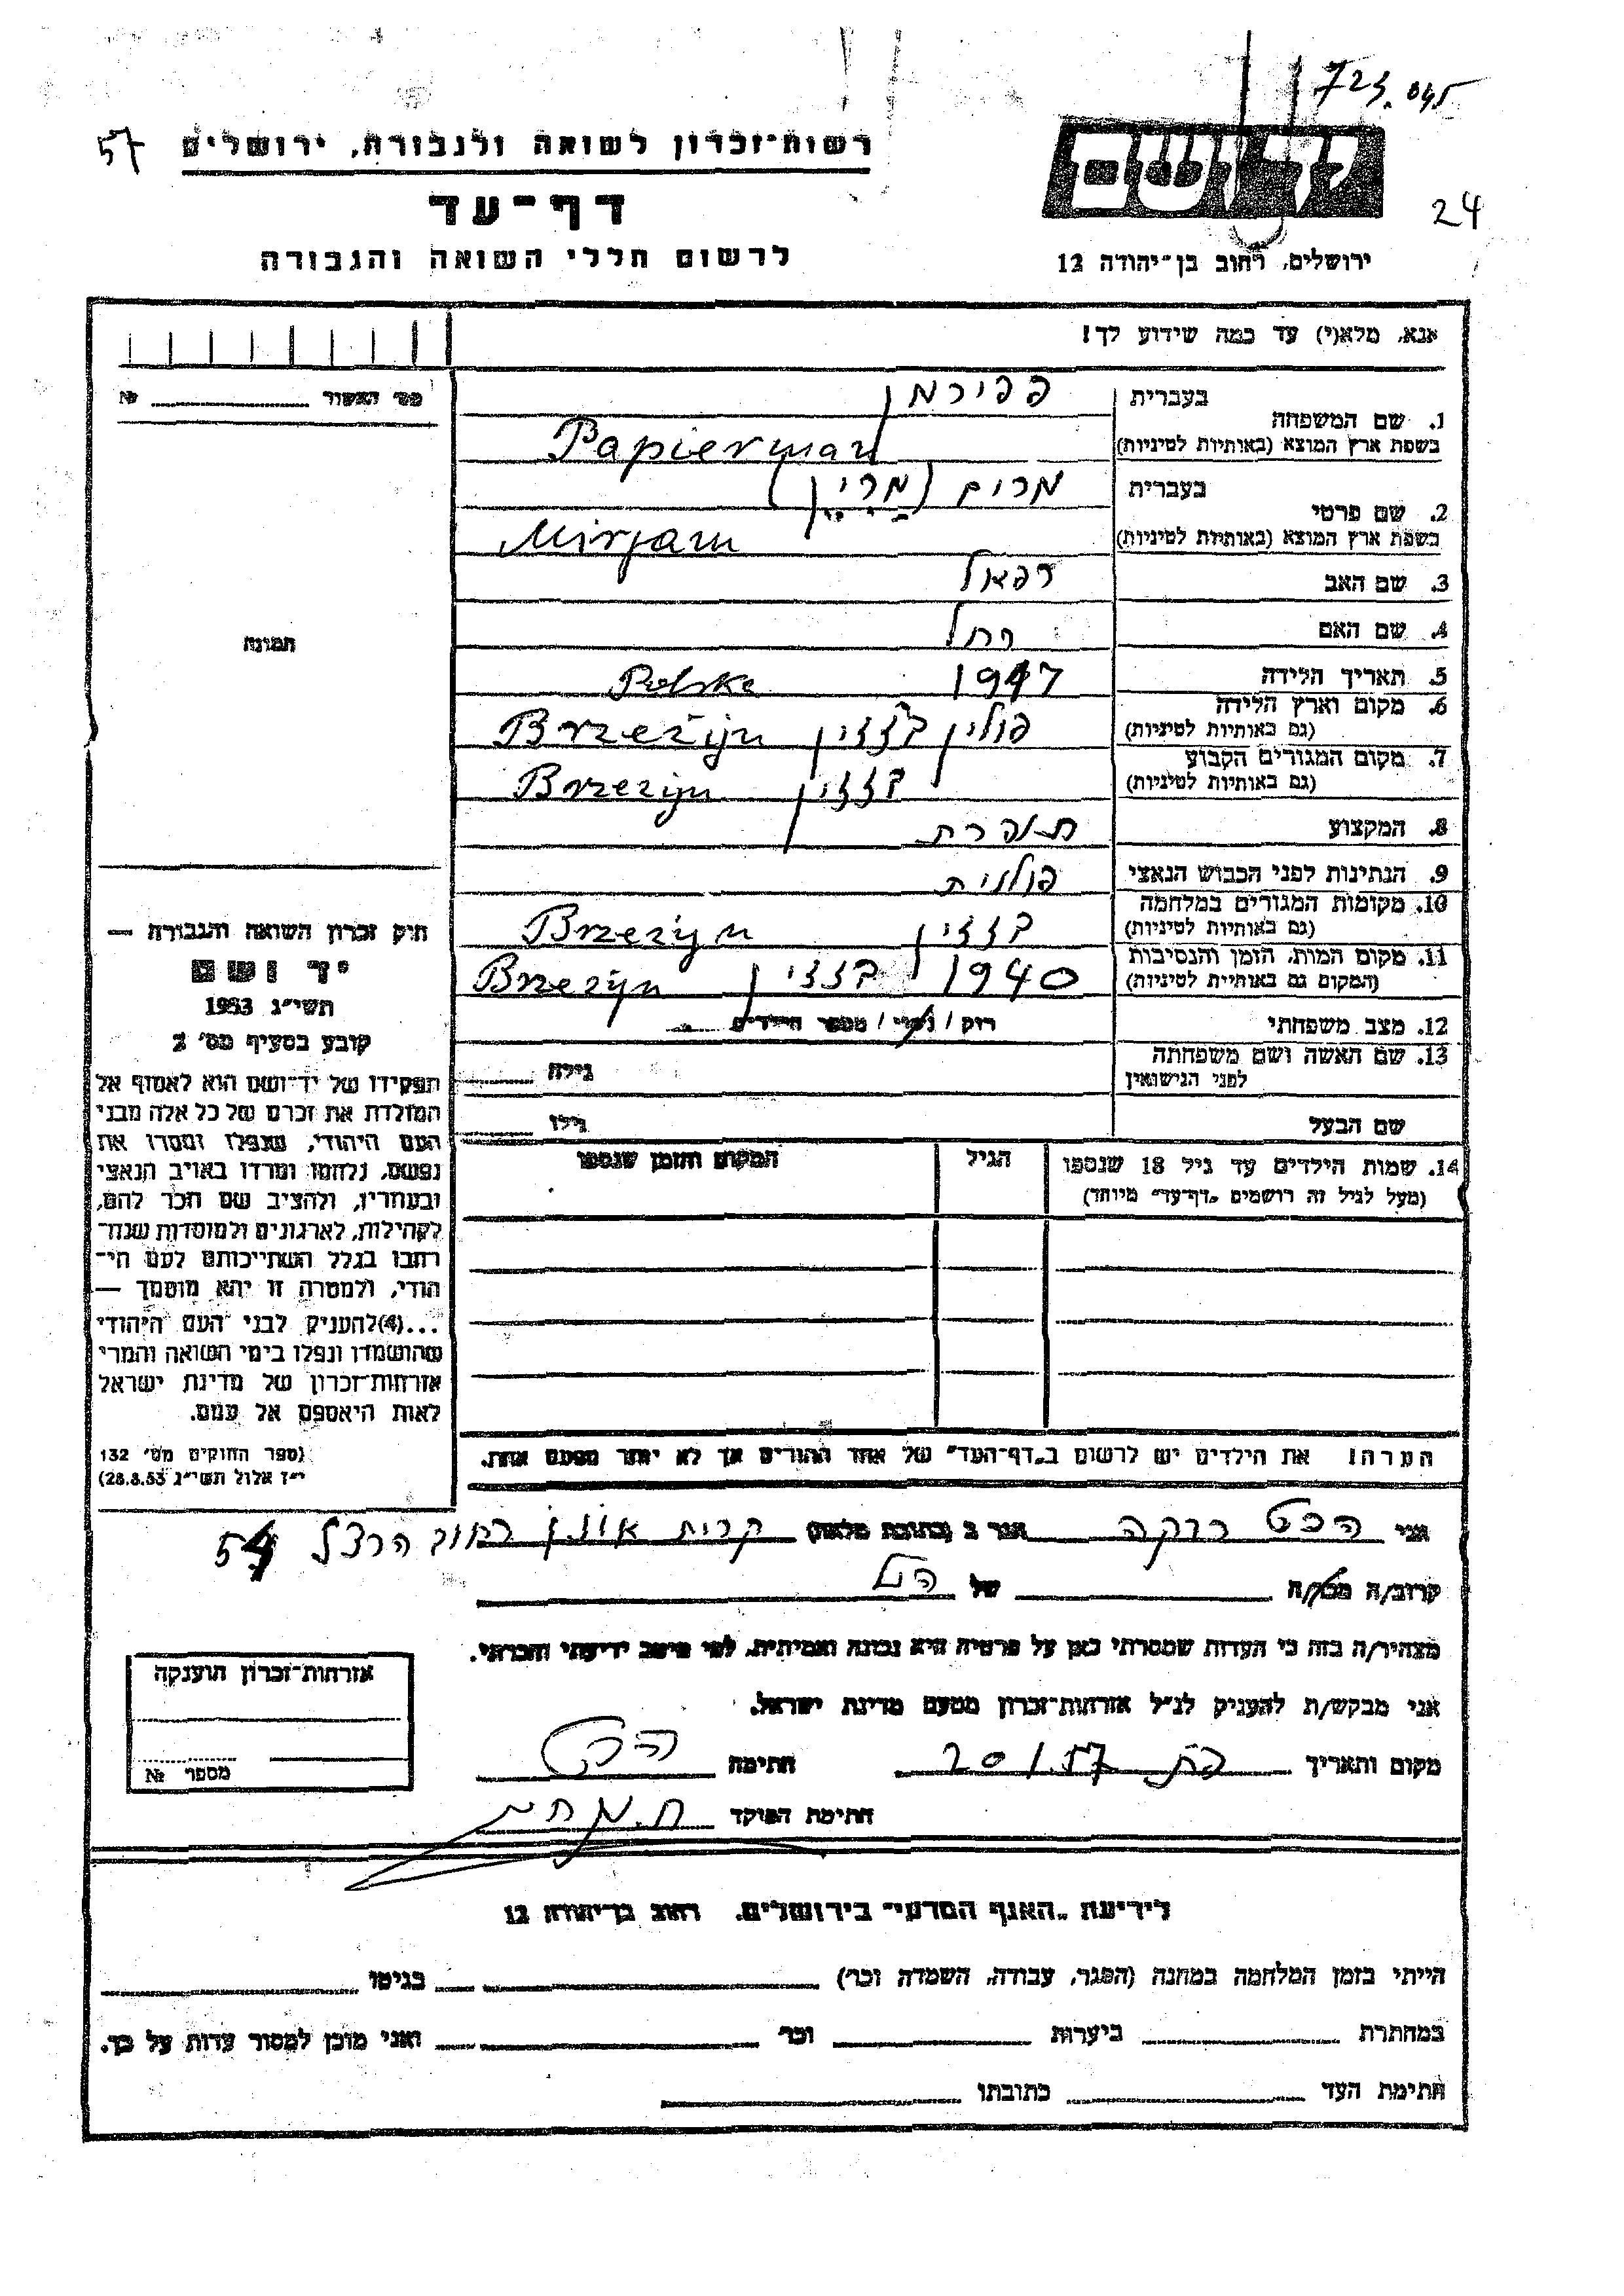 723.045
57
רשות־זכרון לשואה ולגבורה, ירושלים
יד ושם
24
דף־עד
לרשום חללי השואה והגבורה
ירושלים, רחוב בן־יהודה 12
אנא, מלא(י) עד כמה שידוע לך!
מס' האשור № 
1. שם המשפחה
בעברית פפירמן
בשפת ארץ המוצא (באותיות לטיניות) Papierman
2. שם פרטי
בעברית מרים (מרין)
בשפת ארץ המוצא (באותיות לטיניות) Mirjam
3. שם האב רפאל
4. שם האם רחל
5. תאריך הלידה 1917 Polska
6. מקום וארץ הלידה
(גם באותיות לטיניות) פולין בז'זין Brzeziju
7. מקום המגורים הקבוע
(גם באותיות לטיניות) בזזין Brzezijn
8. המקצוע תופרת
9. הנתינות לפני הכבוש הנאצי פולנית
10. מקומות המגורים במלחמה
(גם באותיות לטיניות) בזזין Brzezijn
11. מקום המות, הזמן והנסיבות
(המקום גם באותיות לטיניות) 1940 בזזין Brzezijn
12. מצב משפחתי רוק / נשוי / מספר הילדים
13. שם האשה ושם משפחתה
לפני הנישואין גילה
שם הבעל גילו
14. שמות הילדים עד גיל 18 שנספו הגיל המקום והזמן שנספו
(מעל לגיל זה רושמים „דף־עד" מיוחד)
הערה! את הילדים יש לרשום ב„דף־העד" של אחד ההורים אך לא יותר מפעם אחת.
תמונה
חוק זכרון השואה והגבורה —
יד ושם
תשי"ג 1953
קובע בסעיף מס' 2
תפקידו של יד־ושם הוא לאסוף אל
המולדת את זכרם של כל אלה מבני
העם היהודי, שנפלו ומסרו את
נפשם, נלחמו ומרדו באויב הנאצי
ובעוזריו, ולהציב שם וזכר להם,
לקהילות, לארגונים ולמוסדות שנח־
רבו בגלל השתייכותם לעם הי־
הודי, ולמטרה זו יהא מוסמך —
...(4)להעניק לבני העם היהודי
שהושמדו ונפלו בימי השואה והמרי
אזרחות־זכרון של מדינת ישראל
לאות היאספם אל עמם.
(ספר החוקים מס' 132
י"ז אלול תשי"ג 28.8.53)
אני הכט ברקה הגר ב (כתובת מלאה) קרית אונו רחוב הרצל 54
קרוב/ה מכר/ה של
מצהיר/ה בזה כי העדות שמסרתי כאן על פרטיה היא נכונה ואמיתית, לפי מיטב ידיעתי והכרתי.
אני מבקש/ת להעניק לנ"ל אזרחות־זכרון מטעם מדינת ישראל.
מקום ותאריך חתימה הכט
חתימת הפוקד
אזרחות־זכרון הוענקה
מספר №
לידיעת „האגף המדעי" בירושלים, רחוב בן־יהודה 12
הייתי בזמן המלחמה במחנה (הסגר, עבודה, השמדה וכו') בגיטו
במחתרת ביערות וכו' ואני מוכן למסור עדות על כך.
חתימת העד כתובתו